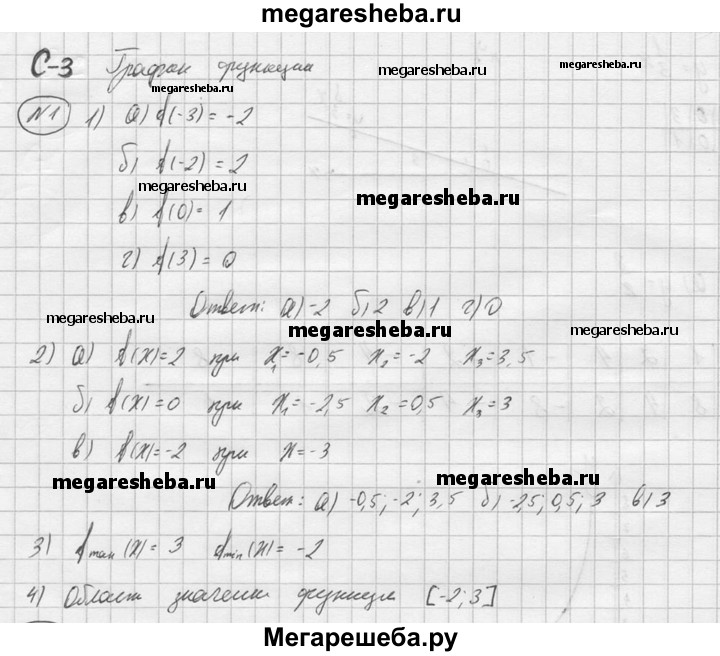 megaresheba.ru
С-3 График функции
megaresheba.ru
megaresheba.ru
megaresheba.ru
№1 1) а) f(-3) = -2
б) f(-2) = 2
megaresheba.ru
megaresheba.ru
в) f(0) = 1
г) f(3) = 0
Ответ: а) -2 б) 2 в) 1 г) 0
megaresheba.ru
megaresheba.ru
megaresheba.ru
2) а) f(x)=2 при x₁=-0,5 x₂=-2 x₃=3,5
б) f(x)=0 при x₁=-2,5 x₂=0,5 x₃=3
в) f(x)=-2 при x=-3
megaresheba.ru
megaresheba.ru
Ответ: а) -0,5; -2; 3,5 б) -2,5; 0,5; 3 в) 3
3) fmax(x) = 3 fmin(x) = -2
4) Област значени функции [-2; 3]
Мегарешеба.ру